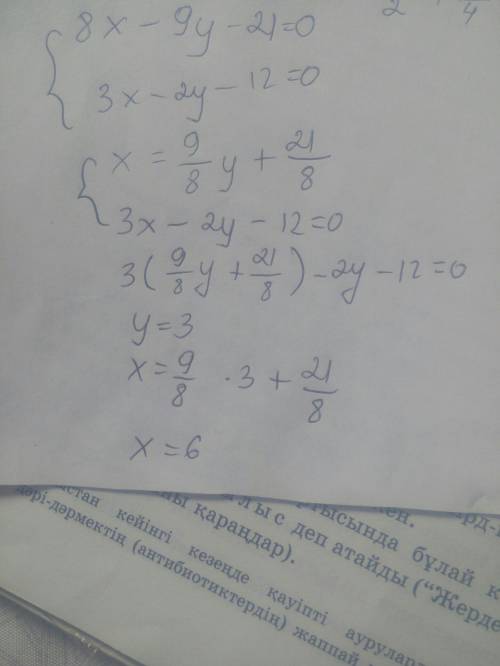 2 4
8x - 9y - 21=0
3x - 2y - 12=0
x = 9/8 y + 21/8
3x - 2y - 12=0
3(9/8 y + 21/8) - 2y - 12=0
y=3
x= 9/8 · 3 + 21/8
x=6
тысында бұлай
лыс деп атайды (“Жерде
қараңдар).
кейінгі кезеңде қауіпті аурулар
дәрі-дәрмектің (антибиотиктердің) жаппай